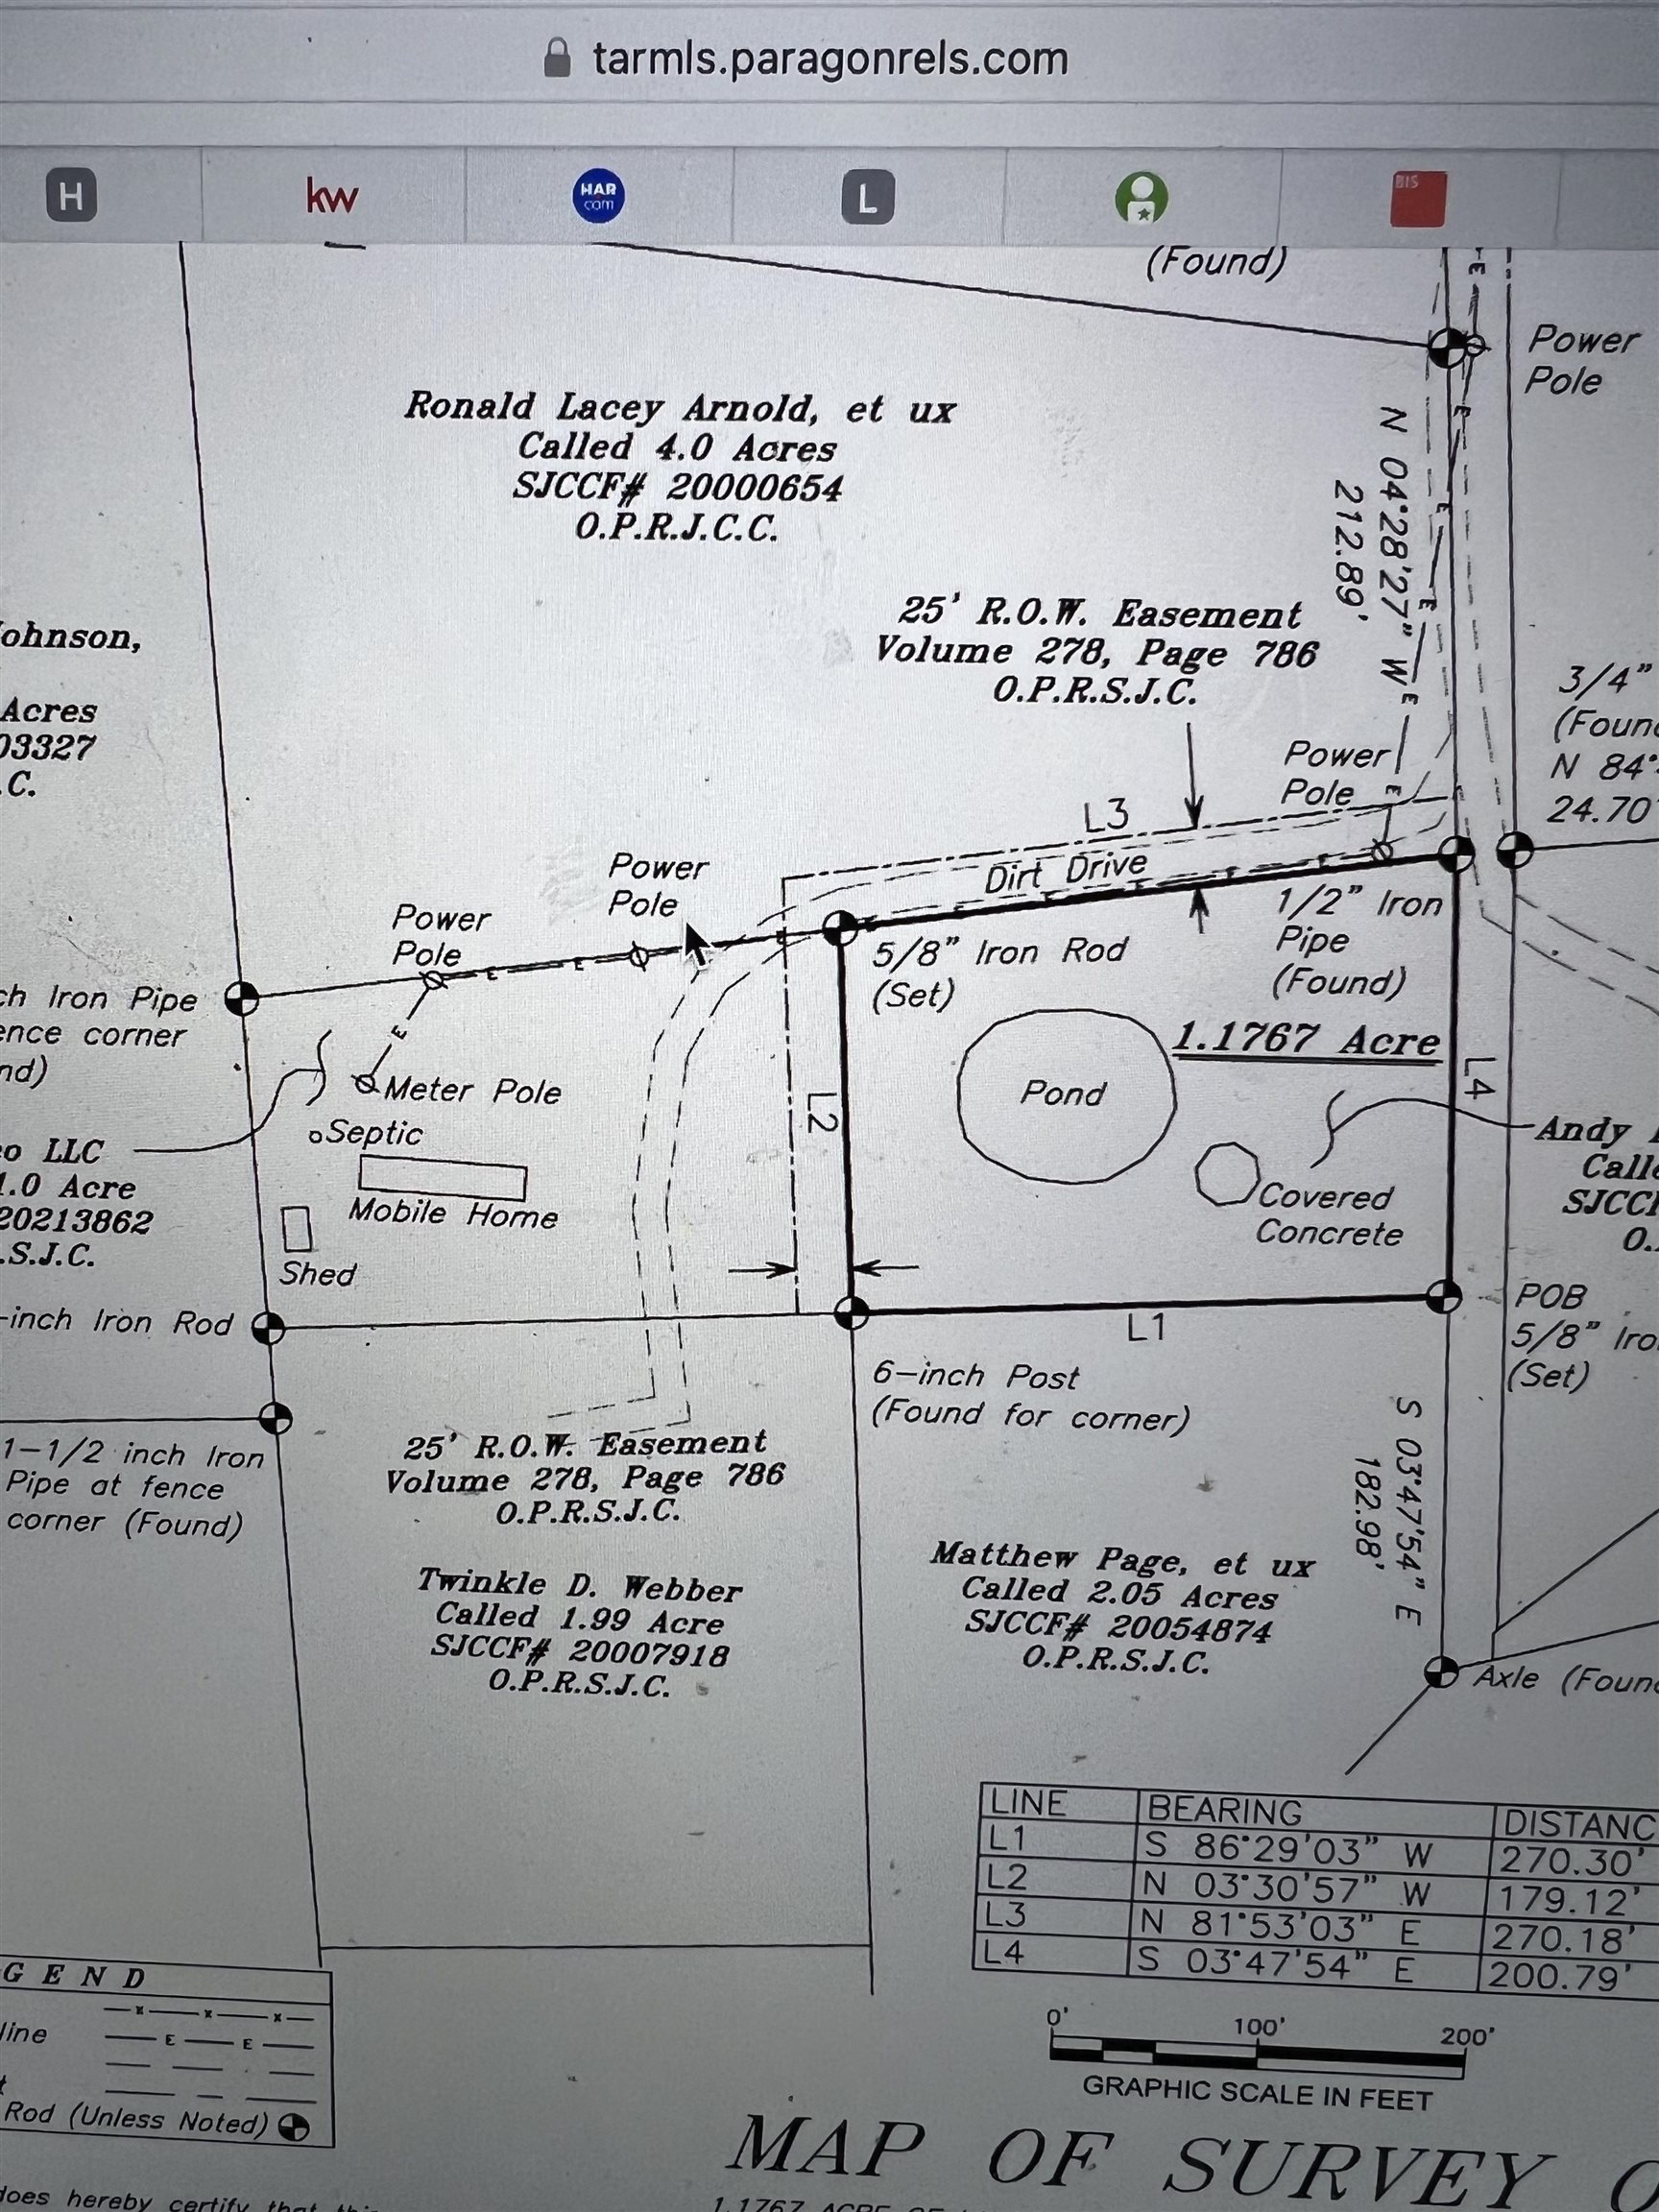 tarmls.paragonrels.com
H
kw
HAR
com
L
BIS
(Found)
Power
Pole
Ronald Lacey Arnold, et ux
Called 4.0 Acres
SJCCF# 20000654
O.P.R.J.C.C.
N 04°28'27" W
212.89'
25' R.O.W. Easement
Volume 278, Page 786
O.P.R.S.J.C.
ohnson,
Acres
03327
.C.
3/4"
(Foun
N 84°
24.70
Power
Pole
L3
Dirt Drive
Power
Pole
Power
Pole
1/2" Iron
Pipe
(Found)
5/8" Iron Rod
(Set)
ch Iron Pipe
ence corner
nd)
1.1767 Acre
L4
Pond
L2
Meter Pole
Septic
Mobile Home
Shed
o LLC
1.0 Acre
20213862
.S.J.C.
Andy
Calle
SJCC
O.
Covered
Concrete
-inch Iron Rod
POB
5/8" Iro
(Set)
L1
6-inch Post
(Found for corner)
1-1/2 inch Iron
Pipe at fence
corner (Found)
25' R.O.W. Easement
Volume 278, Page 786
O.P.R.S.J.C.
S 03°47'54" E
182.98'
Twinkle D. Webber
Called 1.99 Acre
SJCCF# 20007918
O.P.R.S.J.C.
Matthew Page, et ux
Called 2.05 Acres
SJCCF# 20054874
O.P.R.S.J.C.
Axle (Foun
LINE BEARING DISTANC
L1 S 86°29'03" W 270.30'
L2 N 03°30'57" W 179.12'
L3 N 81°53'03" E 270.18'
L4 S 03°47'54" E 200.79'
GEND
line
E E
Rod (Unless Noted)
0' 100' 200'
GRAPHIC SCALE IN FEET
MAP OF SURVEY O
does hereby certify that this
1.1767 ACRE